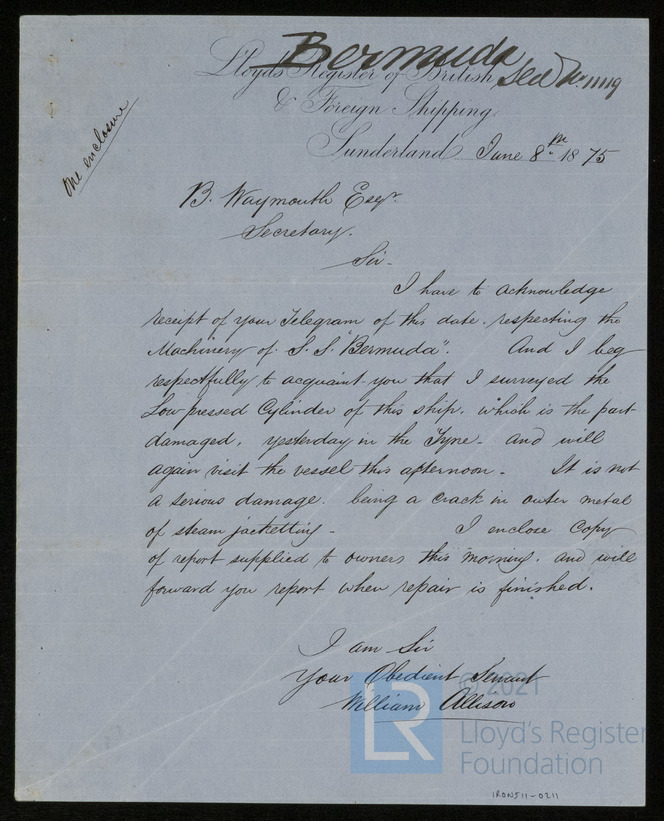 Bermuda
Lloyd's Register of British Sld No. 11119
& Foreign Shipping,
Sunderland June 8th 1875
One enclosure
B. Waymouth Esqr.
Secretary.
Sir -
I have to acknowledge
receipt of your Telegram of this date. respecting the
Machinery of S.S. "Bermuda". And I beg
respectfully to acquaint you that I surveyed the
Low pressed Cylinder of this ship, which is the part
damaged, yesterday in the Tyne - and will
again visit the vessel this afternoon - It is not
a serious damage. being a crack in outer metal
of steam jacketting - I enclose Copy
of report supplied to owners this morning, and will
forward you report when repair is finished.
I am Sir
Your Obedient Servant
William Allison
© 2021
LR
Lloyd's Register
Foundation
IRON511-0211